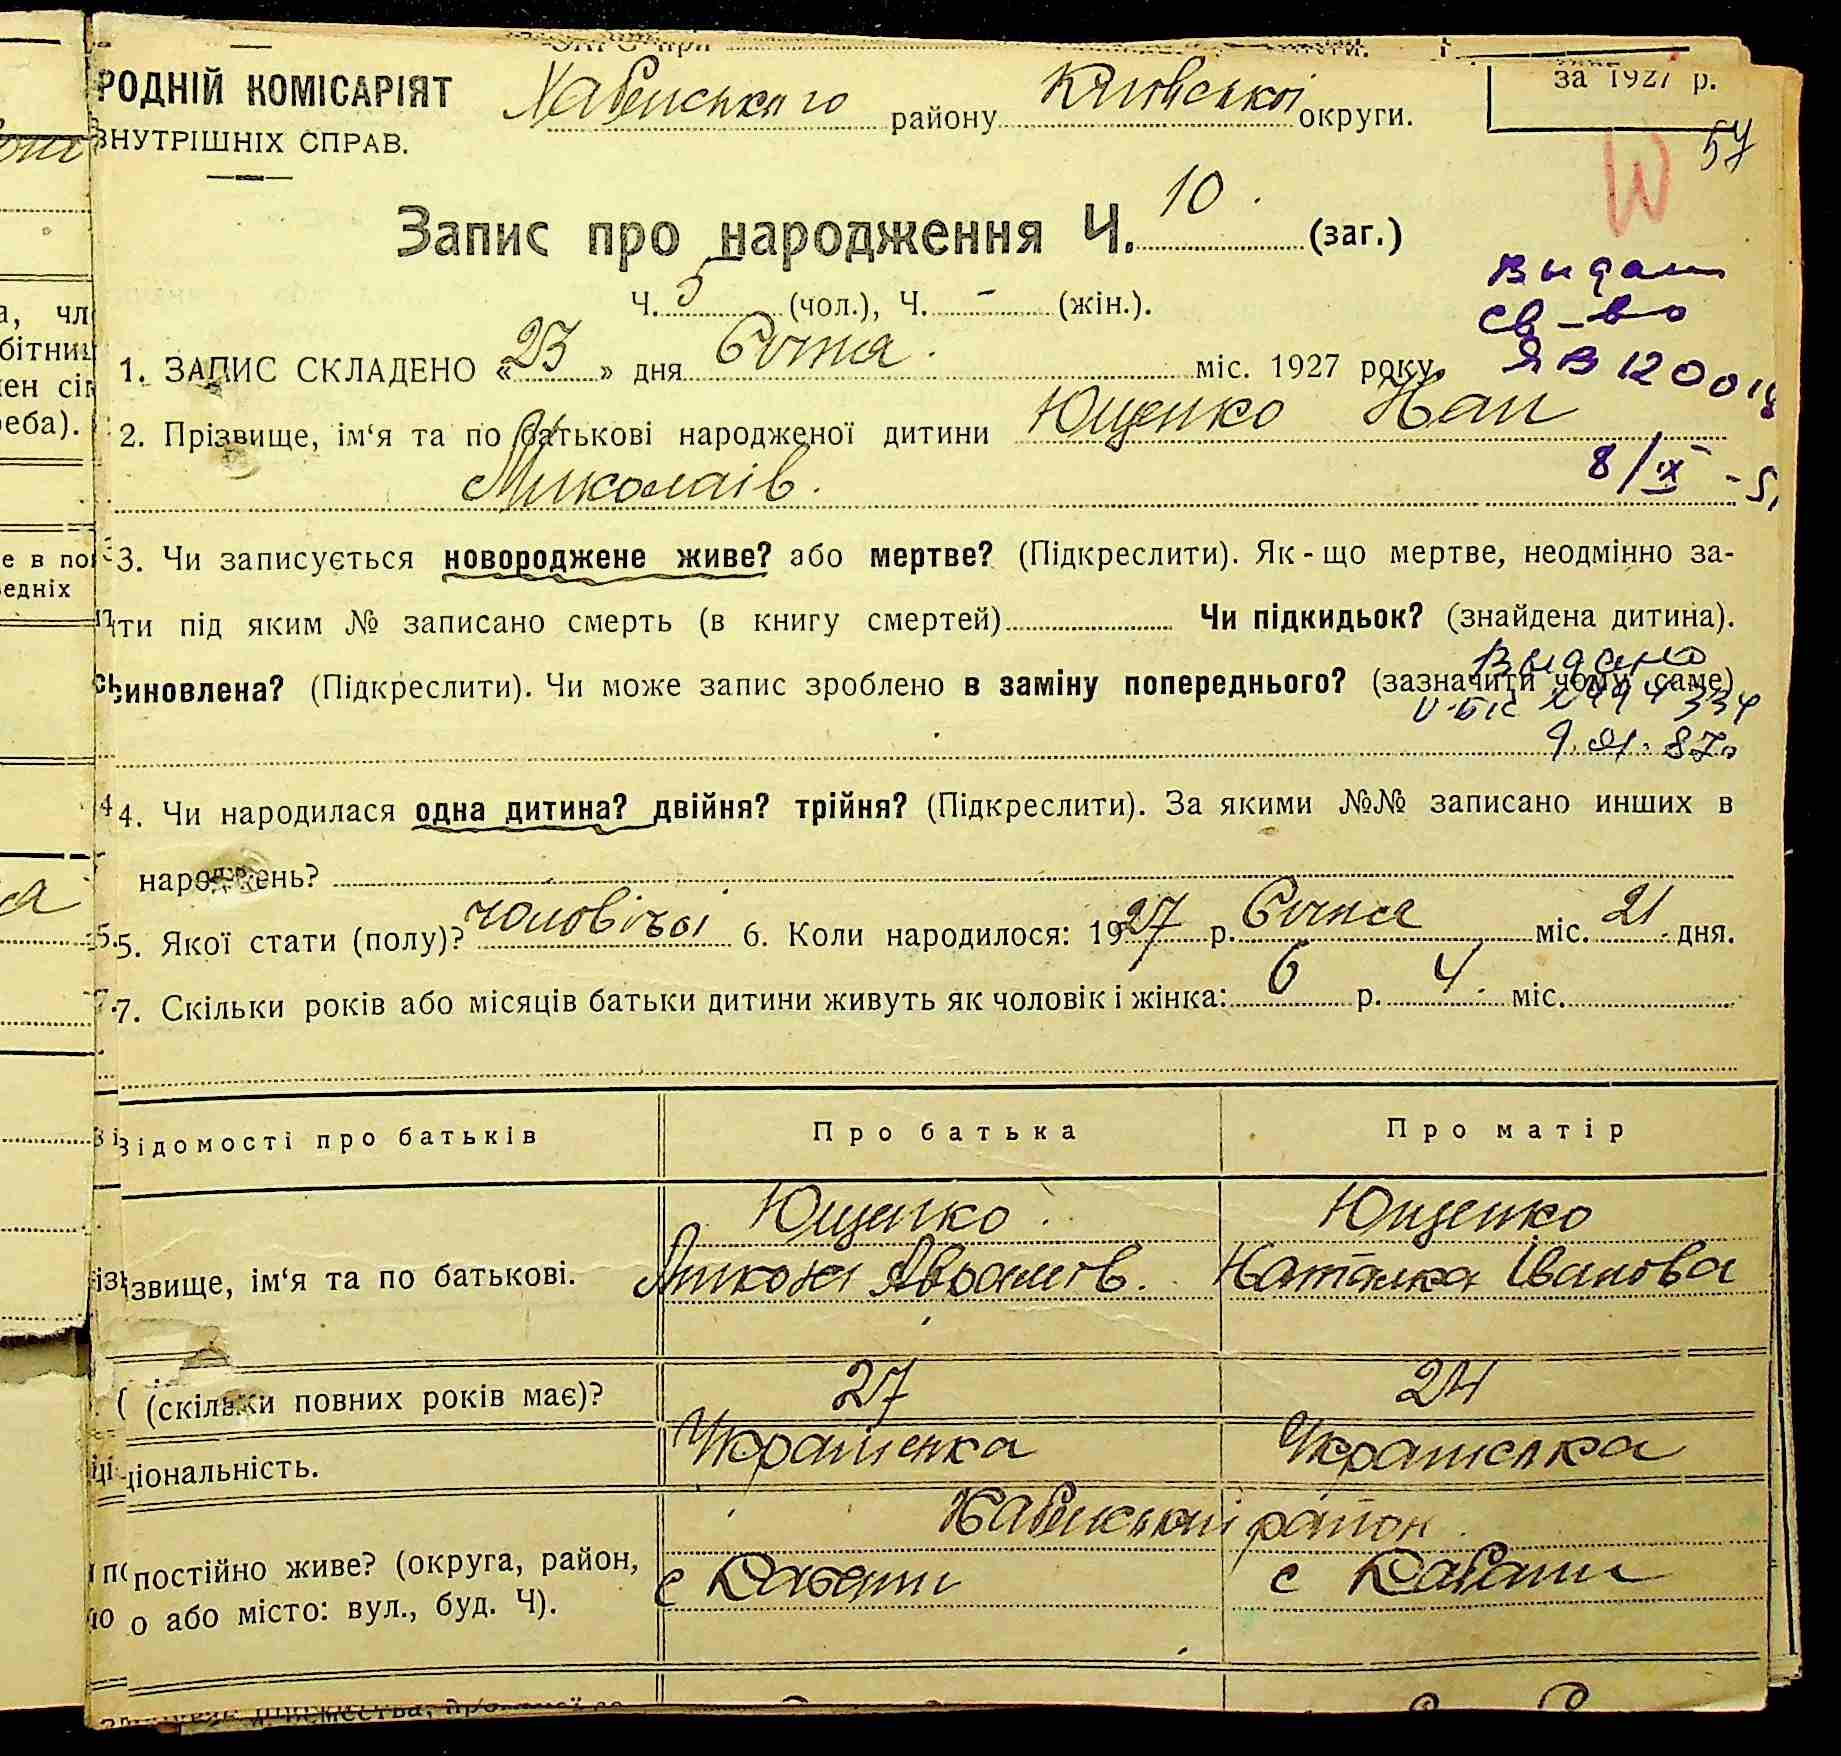 РОДНІЙ КОМІСАРІЯТ
ВНУТРІШНІХ СПРАВ.
Хабенського району Київської округи.
за 1927 р.
57
Запис про народження Ч. 10 (заг.)
Ч. 5 (чол.), Ч. - (жін.).
Выдан
св-во
ЯВ 12001
1. ЗАПИС СКЛАДЕНО «23» дня Січня міс. 1927 року.
2. Прізвище, ім‘я та по батькові народженої дитини Ющенко
Миколаїв.
8/IX - 5
3. Чи записується новороджене живе? або мертве? (Підкреслити). Як-що мертве, неодмінно за-
ти під яким № записано смерть (в книгу смертей) Чи підкидьок? (знайдена дитина).
синовлена? (Підкреслити). Чи може запис зроблено в заміну попереднього? (зазначити чому саме)
Выдано
9.01.87г
4. Чи народилася одна дитина? двійня? трійня? (Підкреслити). За якими №№ записано инших в
народжень?
5. Якої стати (полу)? чоловічої 6. Коли народилося: 1927 р. Січня міс. 21 дня.
7. Скільки років або місяців батьки дитини живуть як чоловік і жінка: 6 р. 4 міс.
Відомості про батьків Про батька Про матір
Ющенко Ющенко
ізвище, ім‘я та по батькові. Микола Аврамов. Наталка Іванова
(скільки повних років має)? 27 24
ціональність. Українка Українка
Хабенський район
постійно живе? (округа, район, с с
о або місто: вул., буд. Ч).